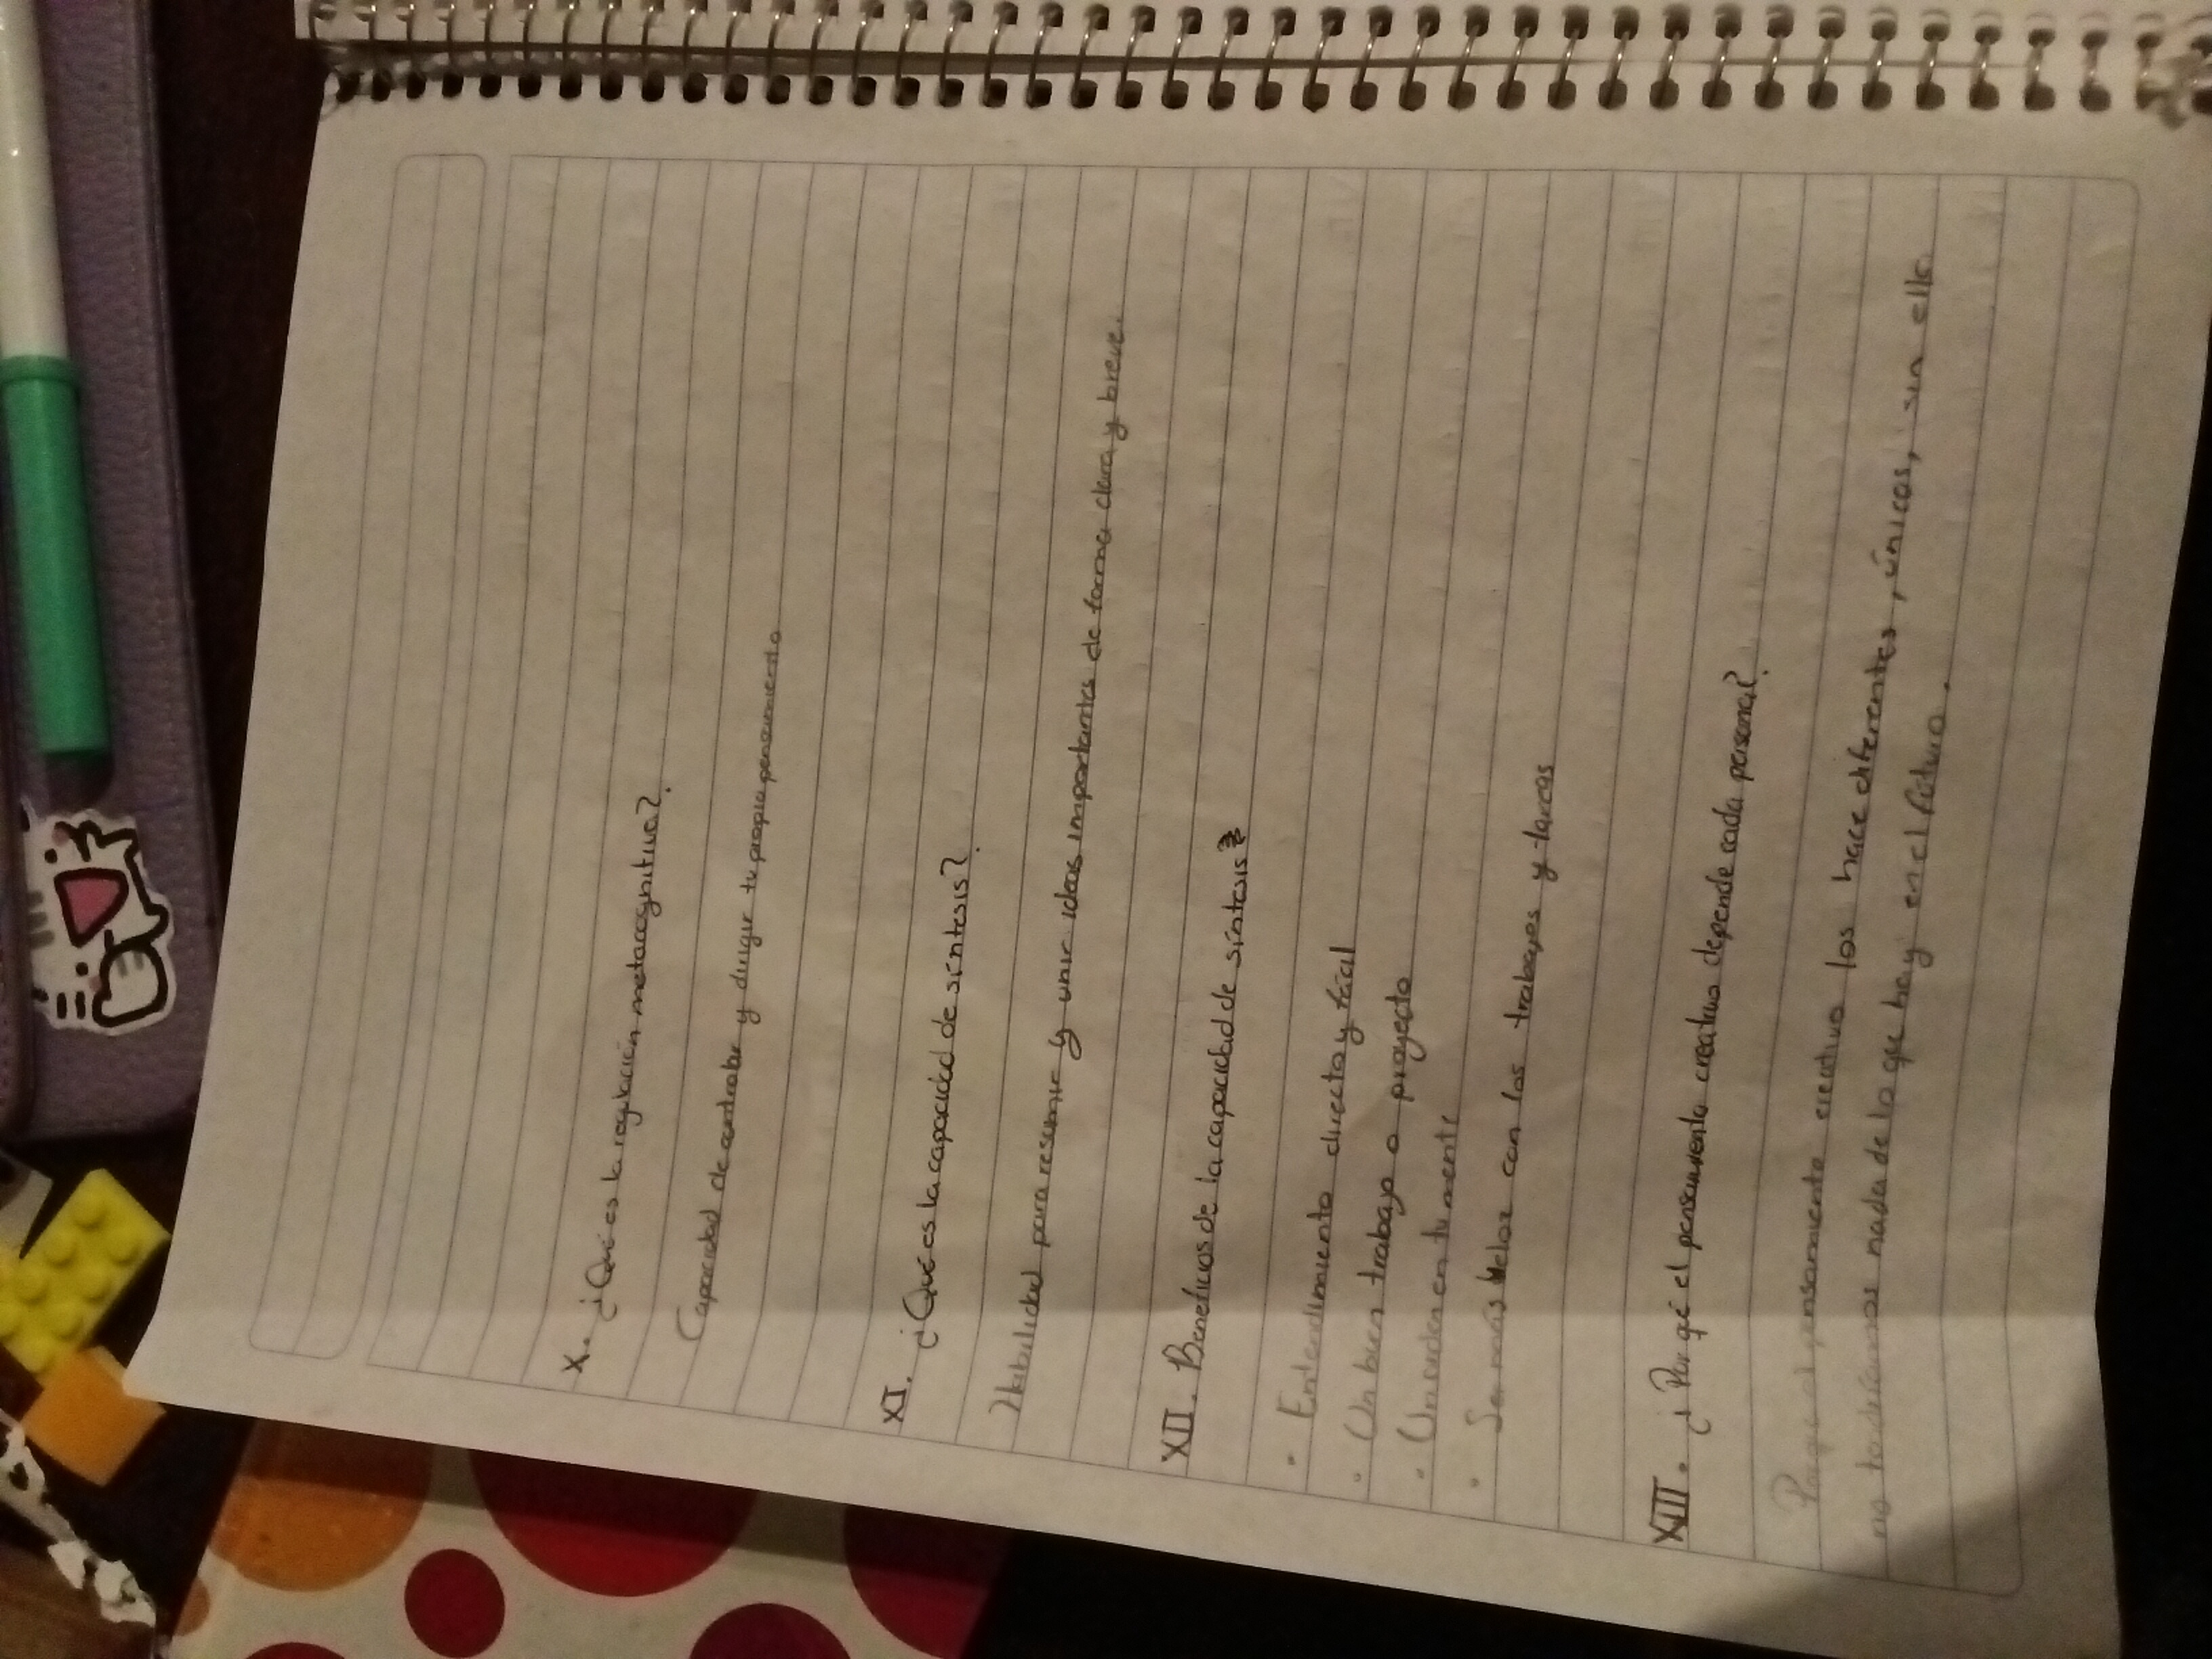 X. ¿Qué es la regulación metacognitiva?
Capacidad de controlar y dirigir tu propio pensamiento
XI. ¿Qué es la capacidad de síntesis?
Habilidad para resumir y unir ideas importantes de forma clara y breve.
XII. Beneficios de la capacidad de síntesis
· Entendimiento directo y fácil
· Un buen trabajo o proyecto
· Un orden en tu mente
· Ser más veloz con los trabajos y tareas
XIII. ¿Por qé el pensamiento creativo depende cada persona?
Porqé el pensamiento creativo los hace diferentes, únicos, sin ello
no tendríamos nada de lo que hay en el futuro.